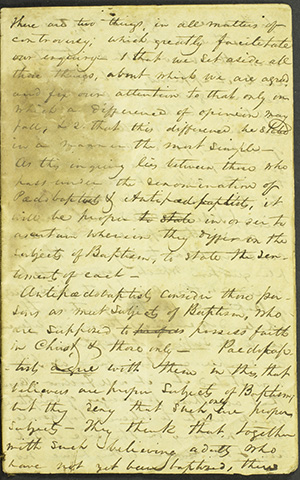 There are two things, in all matters of
controversy, which greatly facilitate
our enquiry. 1 that we set aside all
those things, about which we are agreed,
and fix our attention to that only on
which a difference of opinion may
fall, & 2 that this difference be stated
in a manner the most simple—
As this inquiry lies between those who
pass under the denomination of
Pædobaptists & Antipædobaptists, it
will be proper to state in order to
ascertain wherein they differ on the
subjects of Baptism, to state the sen-
timent of each—
Antipædobaptists consider those per-
sons as meet subjects of Baptism, who
are supposed to possess faith
in Christ & those only— Paedobap-
tists agree with them in this that
believers are proper subjects of Baptism,
but they deny that such only are proper
subjects— They think that together
with such believing adults who
have not yet been baptized, their